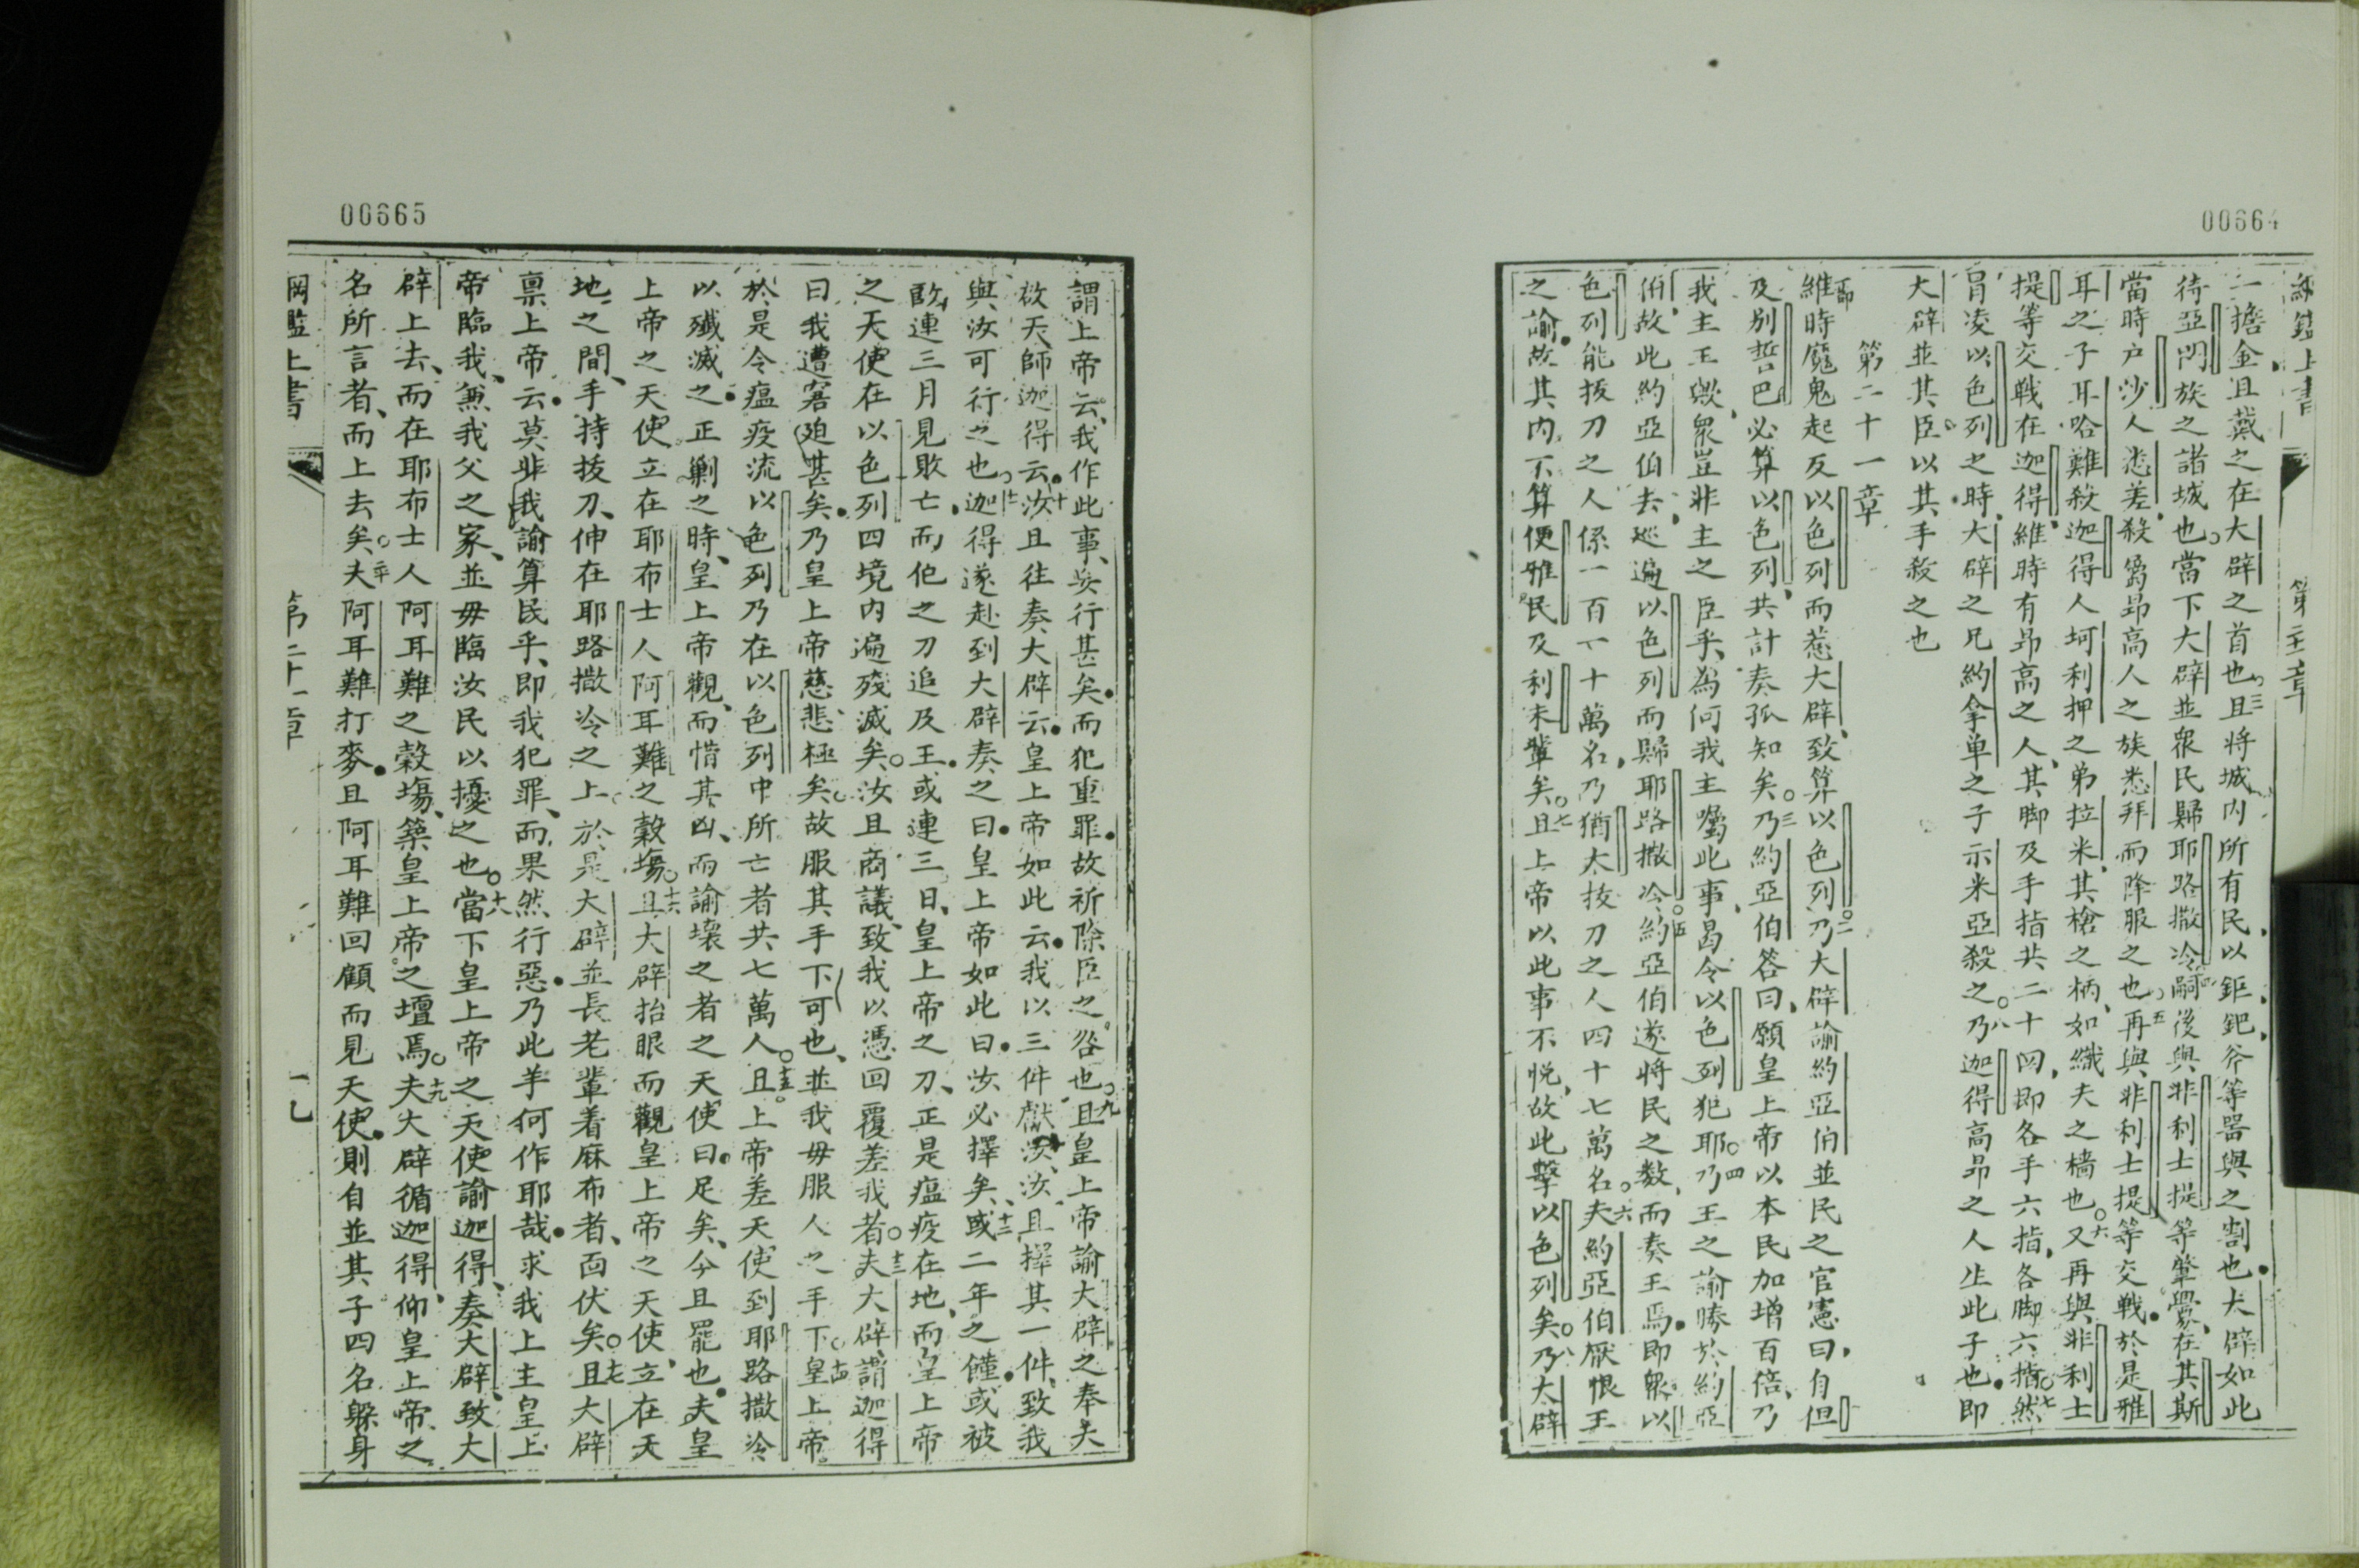 00664
綱鑑上書
第二十章
一擔金且戴之在大辟之首也○三且將城內所有民以鉅鈀斧等器與之割也大辟如此
待亞門族之諸城也當下大辟並眾民歸耶路撒冷○四嗣後與非利士提等肇釁在其斯
當時戶沙人悉差殺為昻高人之族悉拜而降服之也○五再與非利士提等交戰於是雅
耳之子耳哈難殺迦得人坷利押之弟拉米其槍之柄如織夫之檣也○六又再與非利士
提等交戰在迦得維時有昻高之人其脚及手指共二十四即各手六指各脚六指○七然
冐凌以色列之時大辟之兄約拿单之子示米亞殺之○八乃迦得高昻之人生此子也即
大辟並其臣以其手殺之也
第二十一章
節維時魔鬼起反以色列而惹大辟致算以色列○二乃大辟諭約亞伯並民之官憲曰自但
及別哲巴必算以色列共計奏孤知矣○三乃約亞伯答曰願皇上帝以本民加增百倍乃
我主王歟眾豈非主之臣乎為何我主囑此事曷令以色列犯耶○四乃王之諭勝於約亞
伯故此約亞伯去巡遍以色列而歸耶路撒冷○五約亞伯遂將民之數而奏王焉即眾以
色列能拔刀之人係一百一十萬名乃猶太拔刀之人四十七萬名○六夫約亞伯厭恨王
之諭故其內不算便雅民及利未輩矣○七且上帝以此事不悅故此擊以色列矣○八乃大辟
00665
謂上帝云我作此事妄行甚矣而犯重罪故祈除臣之咎也○九且皇上帝諭大辟之奉夫
啟天師迦得云十汝且往奏大辟云皇上帝如此云我以三件獻汝汝且擇其一件致我
與汝可行之也○十一迦得遂赴到大辟奏之曰皇上帝如此曰汝必擇矣十二或二年之饉或被
敵連三月見敗亡而他之刀追及王或連三日皇上帝之刀正是瘟疫在地而皇上帝
之天使在以色列四境內遍殘滅矣○汝且商議致我以憑回覆差我者○十三夫大辟謂迦得
曰我遭窘廹甚矣乃皇上帝慈悲極矣故服其手下可也並我毋服人之手下○十四皇上帝
於是令瘟疫流以色列乃在以色列中所亡者共七萬人○十五且上帝差天使到耶路撒冷
以殲滅之正剿之時皇上帝觀而惜其凶而諭壞之者之天使曰足矣今且罷也夫皇
上帝之天使立在耶布士人阿耳難之穀塲○十六且大辟抬眼而觀皇上帝之天使立在天
地之間手持拔刀伸在耶路撒冷之上於是大辟並長老輩着麻布者面伏矣○十七且大辟
禀上帝云莫非我諭算民乎即我犯罪而果然行惡乃此羊何作耶哉求我上主皇上
帝臨我兼我父之家並毋臨汝民以擾之也○十八當下皇上帝之天使諭迦得奏大辟致大
辟上去而在耶布士人阿耳難之穀塲築皇上帝之壇焉○十九夫大辟循迦得仰皇上帝之
名所言者而上去矣○二十夫阿耳難打麥且阿耳難回顧而見天使則自並其子四名躱身
綱鑑上書
第二十一章